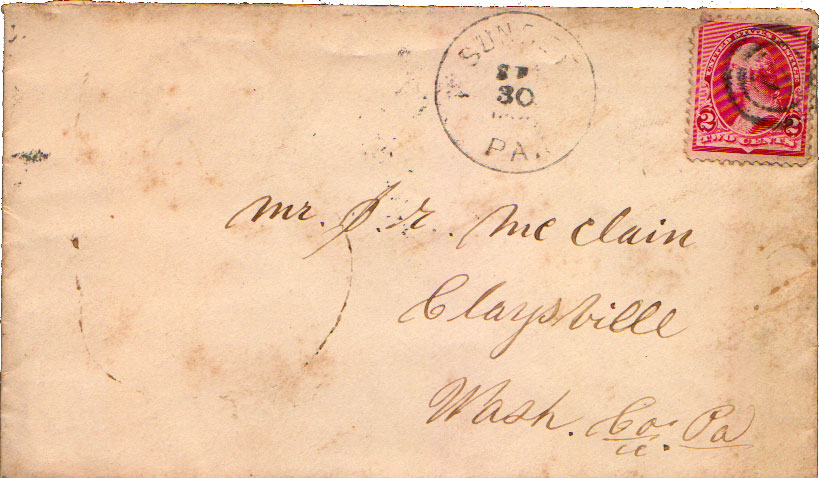 SUN
30
PA.
UNITED STATES POSTAGE
2 2
TWO CENTS
Mr. J. R. McClain
Claysville
Wash. Co. Pa